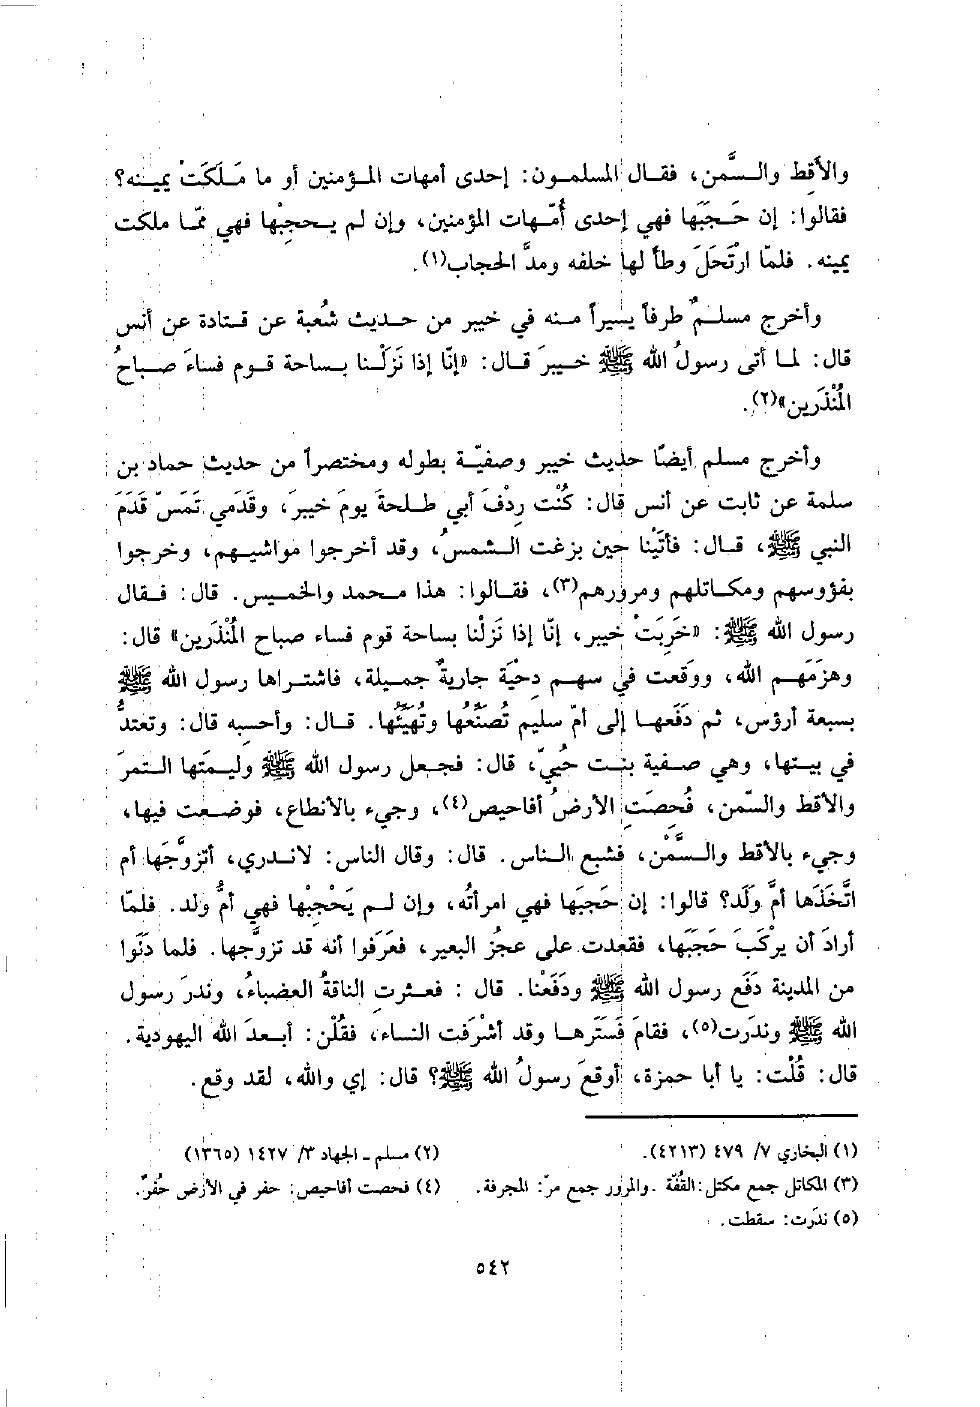 والأَقِط والسَّمن، فقال المسلمون: إحدى أمهات المؤمنين أو ما مَلَكَتْ يمينه؟
فقالوا: إن حَجَبَها فهي إحدى أُمّهات المؤمنين، وإن لم يحجِبْها فهي ممّا ملكت
يمينه. فلمّا ارْتَحَلَ وطأ لها خلفه ومدَّ الحجاب(١).
وأخرج مسلمٌ طرفاً يسيراً منه في خيبر من حديث شُعبة عن قتادة عن أنس
قال: لما أتى رسولُ الله ﷺ خيبرَ قال: «إنّا إذا نَزَلْنا بساحة قوم فساءَ صباحُ
المُنْذَرين»(٢).
وأخرج مسلم أيضًا حديث خيبر وصفيّة بطوله ومختصراً من حديث حماد بن
سلمة عن ثابت عن أنس قال: كُنْت رِدْفَ أبي طلحةَ يومَ خيبرَ، وقَدَمي تَمَسّ قَدَمَ
النبي ﷺ، قال: فأتَيْنا حين بزغت الشمسُ، وقد أخرجوا مواشيهم، وخرجوا
بفؤوسهم ومكاتلهم ومرورهم(٣)، فقالوا: هذا محمد والخميس. قال: فقال
رسول الله ﷺ: «خَرِبَتْ خيبر، إنّا إذا نَزلْنا بساحة قوم فساء صباح المُنْذَرين» قال:
وهزمَهم الله، ووقعت في سهم دِحْيَة جاريةٌ جميلة، فاشتراها رسول الله ﷺ
بسبعة أرؤس، ثم دَفَعها إلى أمّ سليم تُصَنِّعُها وتُهَيِّئُها. قال: وأحسِبه قال: وتعتدُّ
في بيتها، وهي صفية بنت حُييّ، قال: فجعل رسول الله ﷺ وليمتَها التمرَ
والأقط والسّمن، فُحِصَتِ الأرضُ أفاحيص(٤)، وجيء بالأنطاع، فوضعت فيها،
وجيء بالأقِط والسَّمْن، فشبع الناس. قال: وقال الناس: لاندري، أتزوَّجَها أم
اتَّخَذَها أمَّ وَلَد؟ قالوا: إن حَجَبَها فهي امرأتُه، وإن لم يَحْجِبْها فهي أمُّ ولد. فلمّا
أرادَ أن يرْكَبَ حَجَبَها، فقعدت على عجُز البعير، فعَرَفوا أنه قد تزوَّجها. فلما دَنَوا
من المدينة دَفَع رسول الله ﷺ ودَفَعْنا. قال : فعثرت الناقةُ العضباءُ، وندرَ رسول
الله ﷺ وندَرت(٥)، فقامَ فَسَتَرها وقد أشْرَفت النساء، فقُلْن: أبعدَ الله اليهودية.
قال: قُلْت: يا أبا حمزة، أوقعَ رسولُ الله ﷺ؟ قال: إي والله، لقد وقع.
(١) البخاري ٧/ ٤٧٩ (٤٢١٣). (٢) مسلم - الجهاد ٣/ ١٤٢٧ (١٣٦٥)
(٣) المكاتل جمع مكتل: القُفّة .والمرور جمع مرّ: المجرفة. (٤) فحصت أفاحيص: حفر في الأرض حُفَرٌ.
(٥) ندَرت: سقطت.
٥٤٢